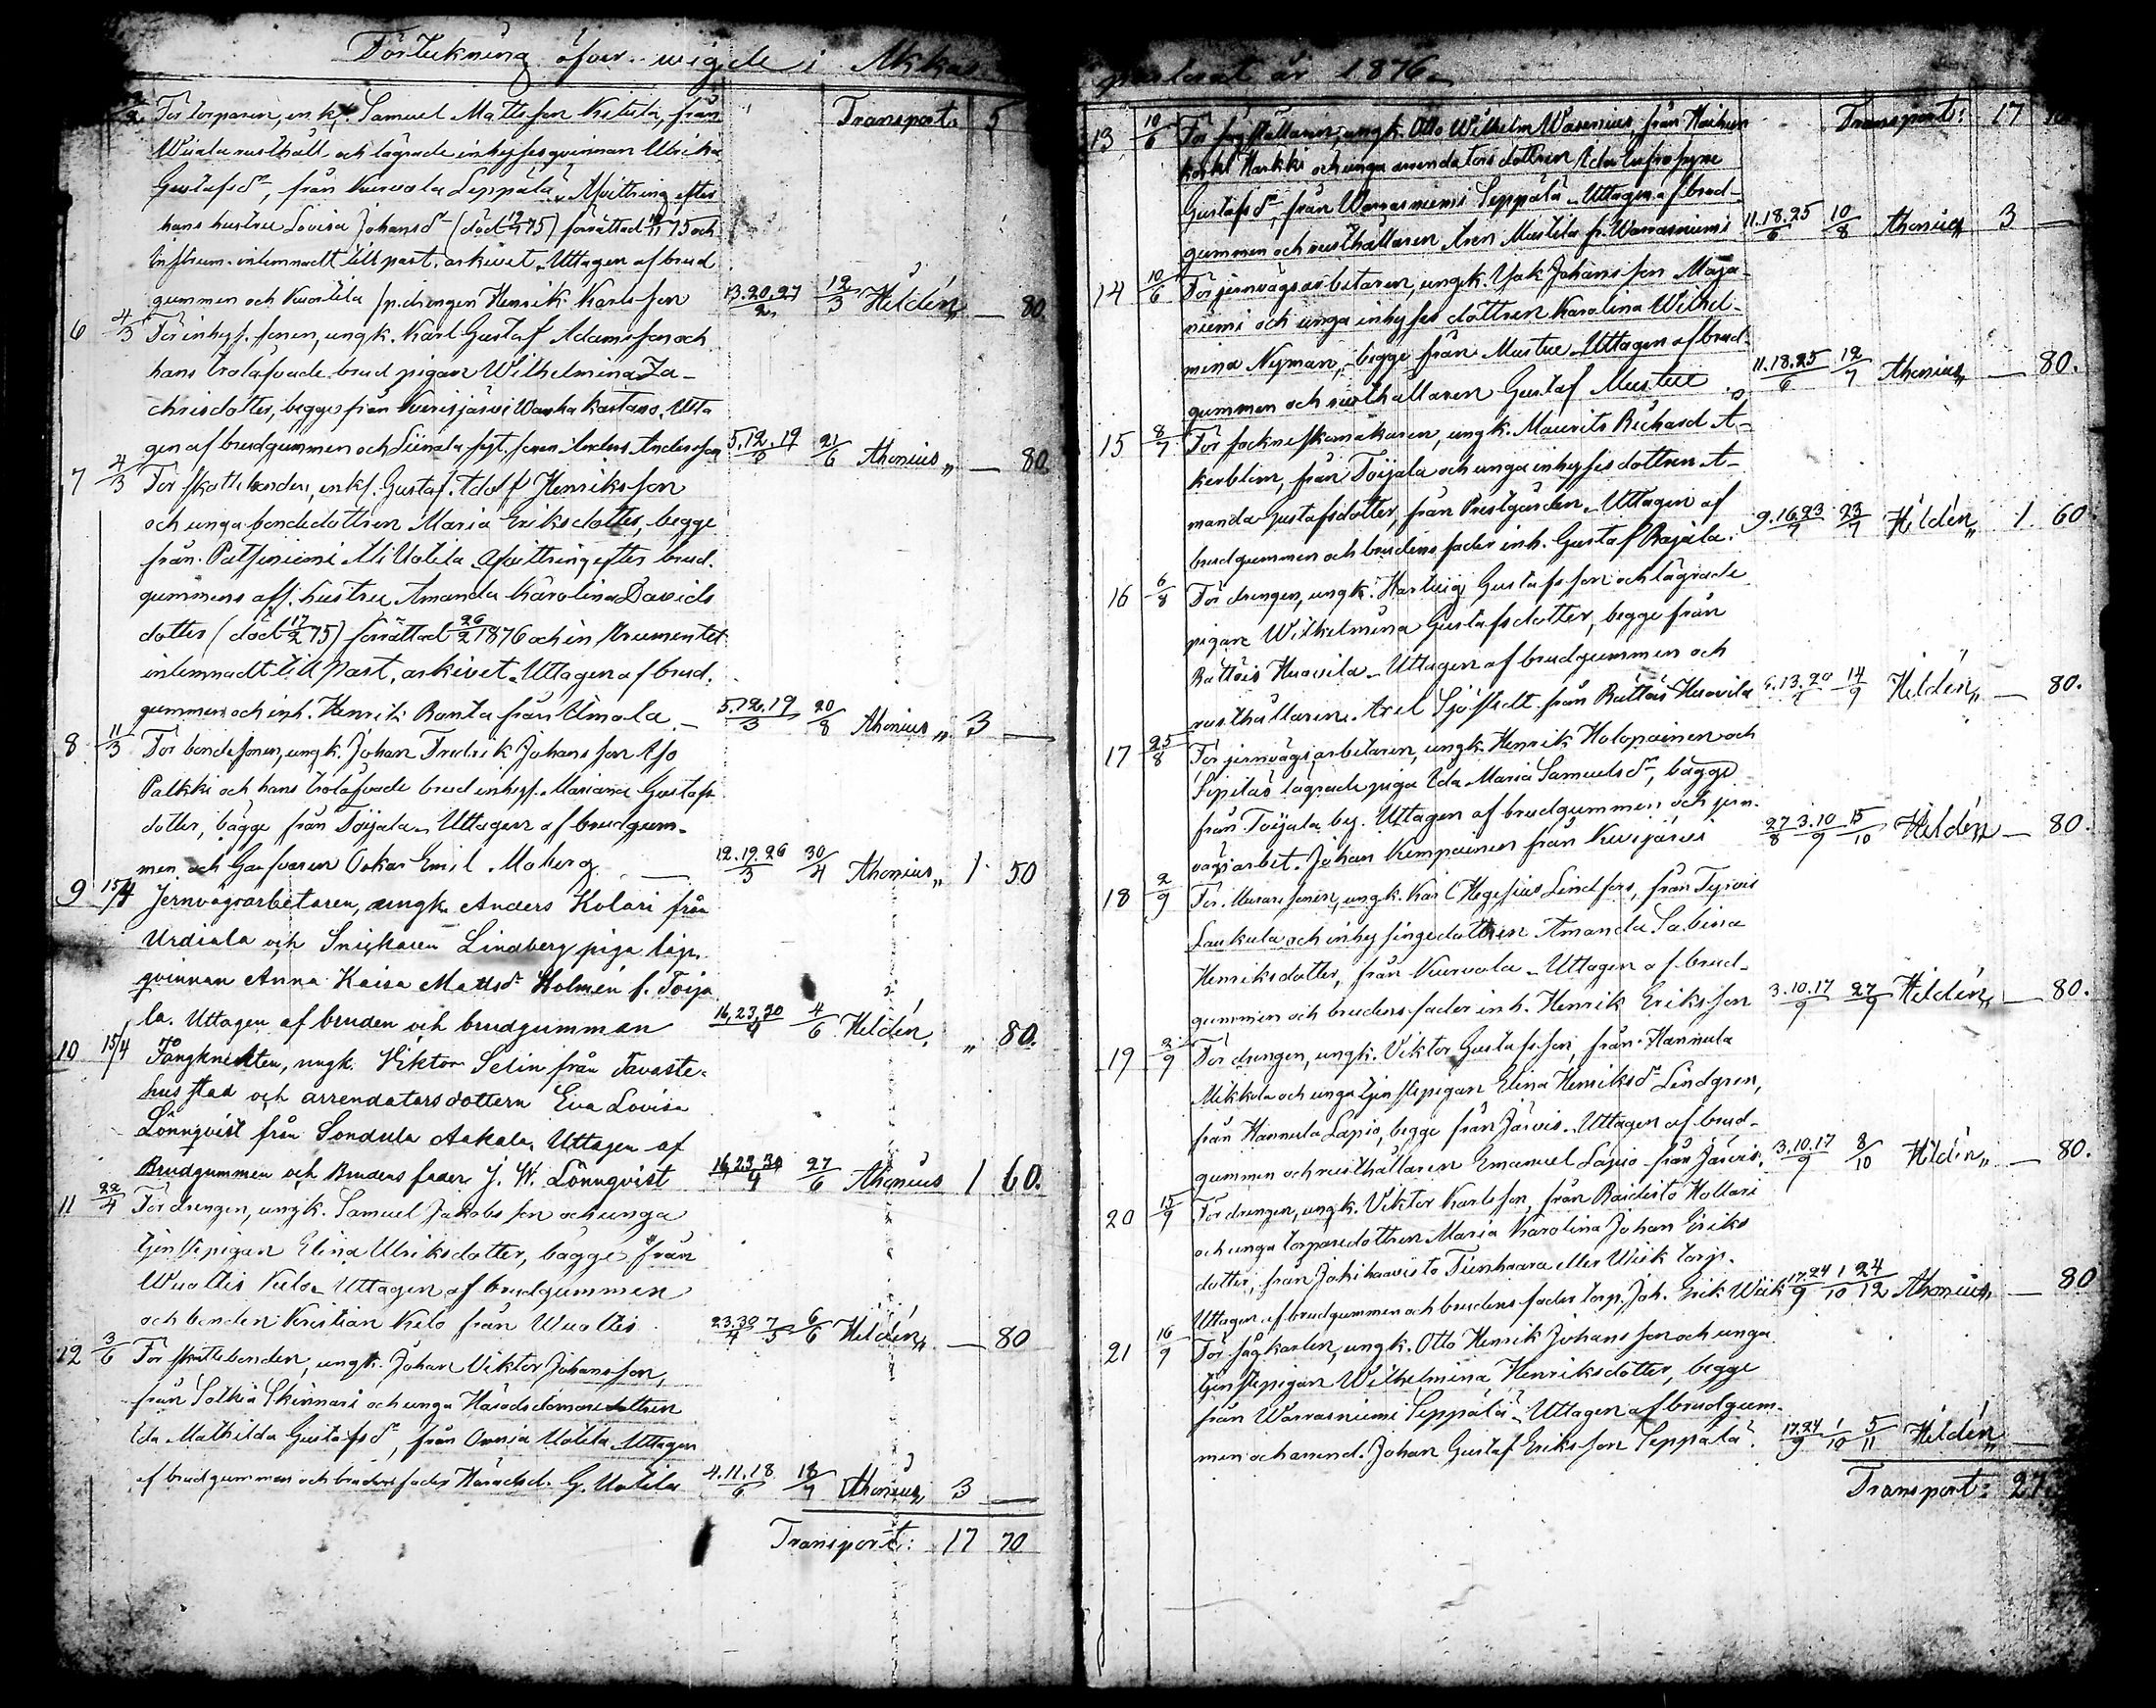 Förteckning öfver wigde i Akkas
12/2 För torparen, enkl. Samuel Mattsson Ketula, från Transport: 5
rusthåll och lägrade inhysesqvinnan Ulrika
Gustafsdr, från Kurvola Seppälä. Afvittring efter
hans hustru Lovisa Johansdr (död 75) förrättad 75 och
instrum. inlemnadt till past. arkivet. Uttagen af brud
gummen och drengen Henrik Karlsson 13.20.27/2 12/3 Heldén „ — 80.
6 4/3 För inhys. sonen, ungk. Karl Gustaf Adamsson och
hans trolofvade brud pigan Wilhelmina Za-
chrisdotter, begge från Kurisjärvi Kartano. Utta
gen af brudgummen och Anders Andersson 5.12.19/3 21/6 Ahonius „ — 80
7 4/3 För skattebonden, enkl. Gustaf Adolf Henriksson
och unga bondedottren Maria Eriksdotter, begge
från Uotila. Afvittring efter brud-
gummens afl. hustru Amanda Karolina Davids
dotter (död 17/2 75) förrättad 26/2 1876 och instrumentet
inlemnadt till Past. arkivet. Uttagen af brud.
gummen och inh. Henrik Ranta från Umola. — 5.12.19/3 20/8 Ahonius „ 3 —
8 11/3 För bondesonen, ungk. Johan Fredrik Johansson
Palkki och hans trolofvade brud inhys. Mariana Gustafs
dotter, bägge från Toijala. Uttagen af brudgum-
men och Garfvaren Oskar Emil Moberg — 12.19.26/3 30/4 Ahonius „ 1 50
9 15/4 Jernvägsarbetaren, ungk. Anders Kolari från
Urdiala och Snickaren Lindberg piga läg.
qvinnan Anna Kaisa Mattsdr Holmén f. Toija
la. Uttagen af bruden och brudgumman 16,23,30/4 4/6 Heldén, „ 80.
10 15/4 Fångknekten, ungk. Viktor Selin från Tavaste-
hus stad och arrendatorsdottern Eva Lovisa
Lönnqvist från Sondula Aakala. Uttagen af
Brudgummen och Brudens fader J. W. Lönnqvist 16,23,30/4 27/6 Ahonius 1 60.
11 22/4 För drengen, ungk. Samuel Jakobsson och unga
tjenstepigan Elina Ulriksdotter, bägge från
Uttagen af brudgummen
och bonden Kristian från 23.30/4 7/5 6/6 Heldén „ — 80
12 3/6 För skattebonden, ungk. Johan Viktor Johansson,
från Sotkia Skinnari och unga Häradsdomaredottren
Ida Mathilda Gustafsdr, från Uotila. Uttagen
af brudgummen och brudens fader Häradsd. G. Uotila 4.11.18/6 18/7 Ahonius 3 —
Transport: 17 70
pastorat år 1876.
13 10/6 ungk. Otto Wilhelm Wasenius, från Transport: 17
och unga arrendatorsdottren Ida Eufrosyne
Gustafsdr, från Warrasniemi Seppälä. Uttagen af brud-
gummen och rusthållaren fr. Warrasniemi 11.18.25/6 10/8 Ahonius „ 3 —
14 10/6 För jernvägsarbetaren, ungk. Isak Johansson Maja-
niemi och unga inhyses dottren Karolina Wilhel-
mina Nyman, begge från Mustue. Uttagen af brud-
gummen och rusthållaren Gustaf Mustue 11.18.25/6 12/7 Ahonius „ — 80.
15 8/7 För sockneskomakaren, ungk. Maurits Richard Å-
kerblom, från Toijala och unga inhysesdottren A-
manda Gustafsdotter, från Prestgården. Uttagen af
brudgummen och brudens fader inh. Gustaf Rajala. 9.16.23/7 23/7 Heldén „ 1. 60.
16 6/8 För drengen, ungk. Hartvig Gustafsson och lägrade
pigan Wilhelmina Gustafsdotter, begge från
Rättöis Huovila. Uttagen af brudgummen och
rusthållaren Axel Sjöstedt från Rättöis Huovila 6.13.20/8 14/9 Heldén „ — 80.
17 25/8 För jernvägsarbetaren, ungk. Henrik Holopainen och
Sipiläs lägrade piga Ida Maria Samuelsdr, bägge
från Toijala by. Uttagen af brudgummen och jern-
vägsarbet. Johan Kemppainen från Kurisjärvi 27/8 3.10/9 15/10 Heldén „ — 80.
18 2/9 För Muraresonen, ungk. Karl Hegesius Lindfors, från
Laukula och inhysingedottren Amanda Sabina
Henriksdotter, från Kurvola. Uttagen af brud-
gummen och brudens fader inh. Henrik Eriksson 3.10.17/9 27/9 Heldén „ — 80.
19 2/9 För drengen, ungk. Viktor Gustafsson, från Hannula
Mikkola och unga tjenstepigan Elina Henriksdr Lindgren,
från Hannula Lapio, begge från Järvis. Uttagen af brud-
gummen och rusthållaren Emanuel Lapio från Järvis. 3.10.17/9 8/10 Heldén „ — 80.
20 15/9 För drengen, ungk. Viktor Karlsson, från Raidisto Hollari
och unga torparedottren Maria Karolina Johan Eriks
dotter, från Jokihaavisto Tienhaara eller Wiik torp.
Uttagen af brudgummen och brudens fader torp. Joh. Erik Wiik 17.24/9 1/10 24/12 Ahonius „ — 80
21 16/9 För sågkarlen, ungk. Otto Henrik Johansson och unga
tjenstepigan Wilhelmina Henriksdotter, begge
från Warrasniemi Seppälä. Uttagen af brudgum-
men och arrend. Johan Gustaf Eriksson Seppälä. 17.24/9 1/10 5/11 Heldén „ —
Transport: 27